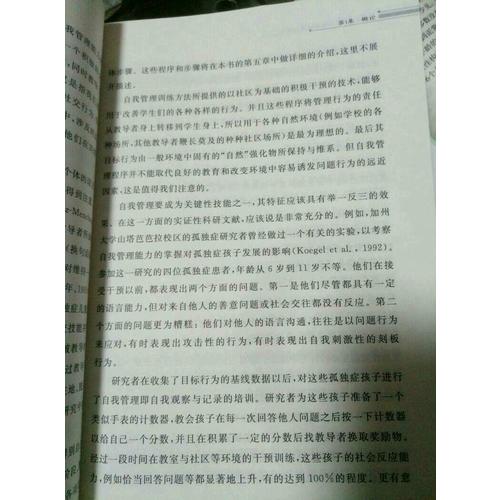 第1章 概论
体步骤。这些程序和步骤将在本书的第五章中做详细的介绍，这里不展
开描述。
自我管理训练方法所提供的以社区为基础的积极干预的技术，能够
用于改善学生们的各种各样的行为。并且这些程序将管理行为的责任
从教导者身上转移到学生身上，所以用于各种自然环境（例如学校的各
种场所，其他教导者鞭长莫及的种种社区场所）是最为理想的。最后其
目标行为由一般环境中固有的“自然”强化物所保持与维系。但自我管
理程序并不能取代良好的教育和改变环境中容易诱发问题行为的远近
因素，这是值得我们注意的。
自我管理要成为关键性技能之一，其特征应该具有举一反三的效
果。在这一方面的实证性科研文献，应该说是非常充分的。例如，加州
大学山塔芭芭拉校区的孤独症研究者曾经做过一个有关的实验，以考察
自我管理能力的掌握对孤独症孩子发展的影响（Koegel et al.，1992）。
参加这一研究的四位孤独症患者，年龄从6岁到11岁不等。他们在接
受干预以前，都表现出两个方面的问题。第一是他们尽管都具有一定
的语言能力，但对来自他人的善意问题或社会交往都没有反应。第二
个方面的问题更为糟糕：他们对他人的语言沟通，往往是以问题行为
来应对，有时表现出攻击性的行为，有时表现出自我刺激性的刻板
行为。
研究者在收集了目标行为的基线数据以后，对这些孤独症孩子进
行了自我管理即自我观察与记录的培训。研究者为这些孩子准备了一个
类似手表的计数器，教会孩子在每一次回答他人问题之后按一下计数器
以给自己一个分数，并且在积累了一定的分数后找教导者换取奖励物。
经过一段时间在教室与社区等环境的干预训练，这些孩子的社会反应能
力，例如恰当回答问题等都显著地上升，有的达到100%的程度。更有意